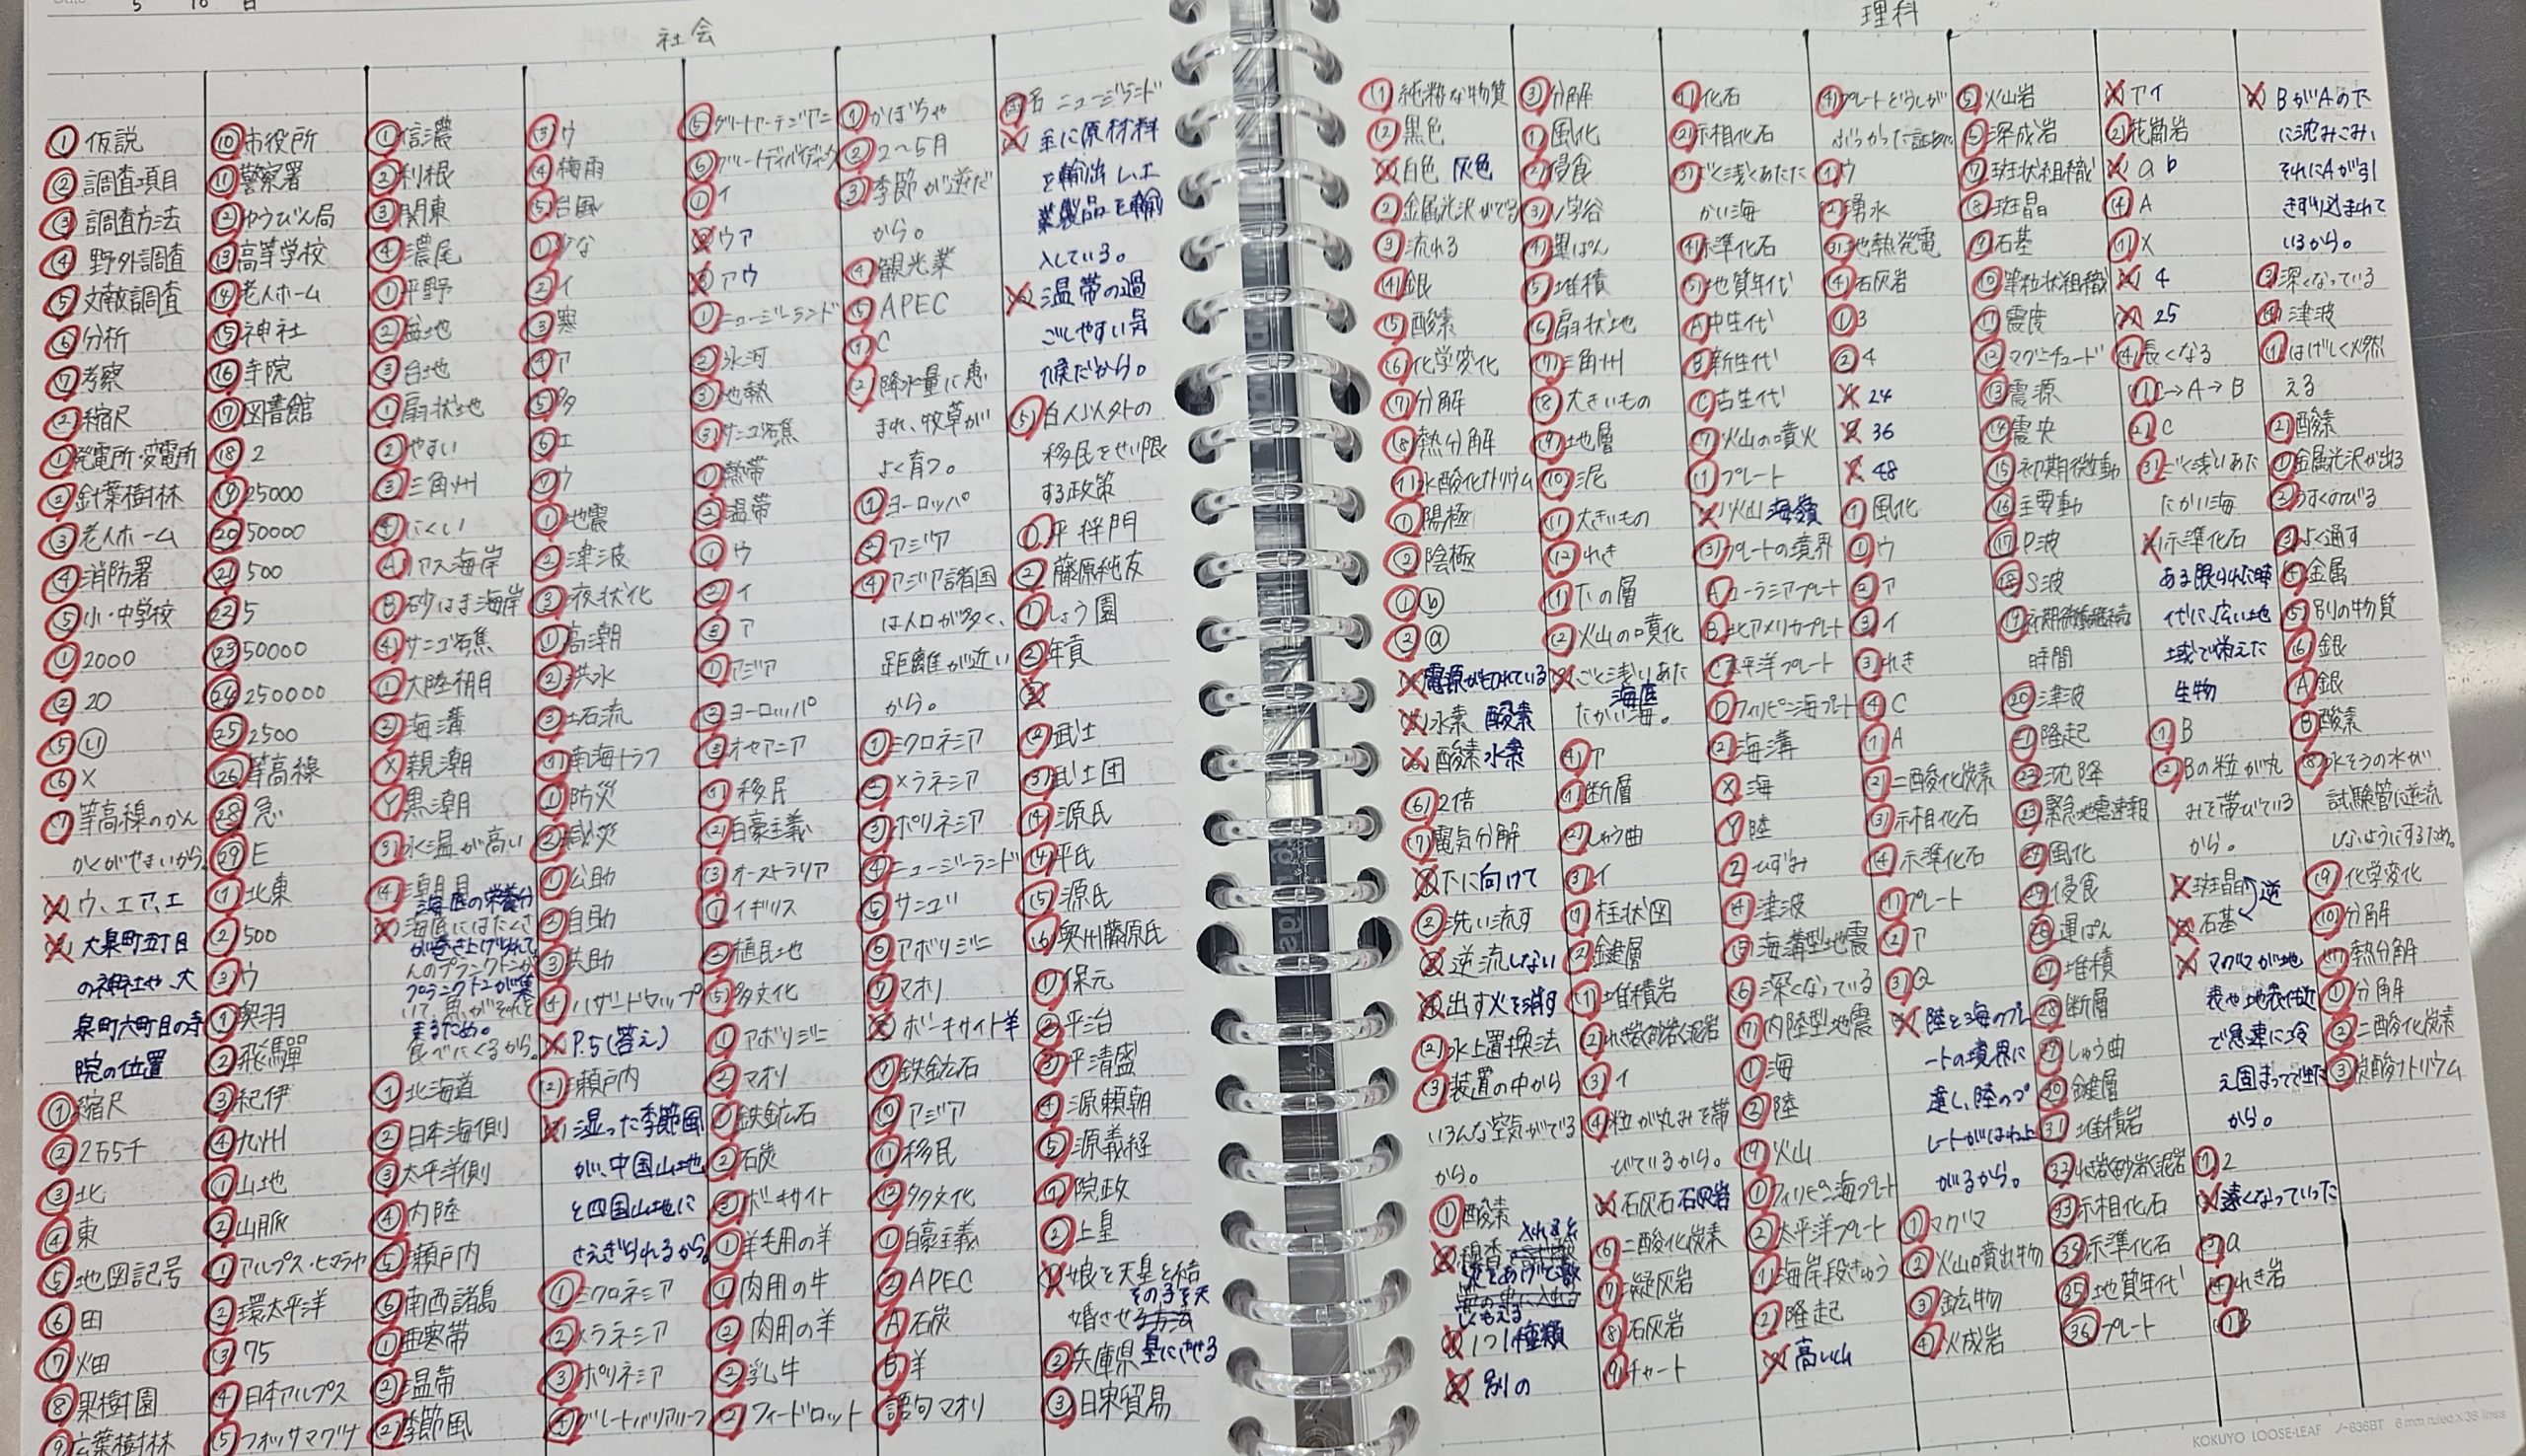 5 10 日
社会
① 仮説
② 調査項目
③ 調査方法
④ 野外調査
⑤ 文献調査
⑥ 分析
⑦ 考察
② 縮尺
① 発電所・変電所
② 針葉樹林
③ 老人ホーム
④ 消防署
⑤ 小・中学校
① 2000
② 20
⑤ (い)
⑥ X
⑦ 等高線のかん
かくがせまいから。
ウ、エ ア、エ
大泉町五丁目
の神社や、大
泉町六町目の寺
院の位置
① 縮尺
② 2万5千
③ 北
④ 東
⑤ 地図記号
⑥ 田
⑦ 畑
⑧ 果樹園
⑨ 広葉樹林
⑩ 市役所
⑪ 警察署
⑫ ゆうびん局
⑬ 高等学校
⑭ 老人ホーム
⑮ 神社
⑯ 寺院
⑰ 図書館
⑱ 2
⑲ 25000
⑳ 50000
㉑ 500
㉒ 5
㉓ 50000
㉔ 250000
㉕ 2500
㉖ 等高線
㉘ 急
㉙ E
① 北東
② 500
③ ウ
① 奥羽
② 飛騨
③ 紀伊
④ 九州
① 山地
② 山脈
① アルプス・ヒマラヤ
② 環太平洋
③ 75
④ 日本アルプス
⑤ フォッサマグナ
① 信濃
② 利根
③ 関東
④ 濃尾
① 平野
② 盆地
③ 台地
① 扇状地
② やすい
③ 三角州
④ にくい
A リアス海岸
B 砂はま海岸
④ サンゴ石焦
① 大陸棚
② 海溝
X 親潮
Y 黒潮
③ 水温が高い
④ 潮目
海底の栄養分
海底にはたくさ
が巻き上げられて、
んのプランクトンが
プランクトンが集
いて、魚がそれを
まるため。
食べにくるから。
① 北海道
② 日本海側
③ 太平洋側
④ 内陸
⑤ 瀬戸内
⑥ 南西諸島
① 亜寒帯
② 温帯
② 季節風
③ ウ
④ 梅雨
⑤ 台風
① 少な
② イ
③ 寒
④ ア
⑤ 夕
⑥ エ
⑦ ウ
① 地震
② 津波
③ 液状化
① 高潮
② 洪水
③ 土石流
① 南海トラフ
① 防災
② 減災
① 公助
② 自助
③ 共助
④ ハザードマップ
P.5(答え)
② 瀬戸内
湿った季節風
が、中国山地
と四国山地に
さえぎられるから。
① ミクロネシア
② メラネシア
③ ポリネシア
④ グレートバリアリーフ
⑤ グレートアーテジアン
⑥ グレートディバイディング
① イ
ウ ア
ア ウ
① ニュージーランド
② 氷河
③ 地熱
③ サンゴ石焦
① 熱帯
② 温帯
① ウ
② イ
③ ア
① アジア
② ヨーロッパ
③ オセアニア
① 移民
② 白豪主義
③ オーストラリア
① イギリス
② 植民地
⑤ 多文化
① アボリジニ
② マオリ
① 鉄鉱石
② 石炭
③ ボーキサイト
① 羊毛用の羊
① 肉用の牛
② 肉用の羊
② 乳牛
② フィードロット
① かぼちゃ
② 2～5月
③ 季節が逆だ
から。
④ 観光業
⑤ APEC
① C
② 降水量に恵
まれ、牧草が
よく育つ。
① ヨーロッパ
② アジア
④ アジア諸国
は人口が多く、
距離が近い
から。
① ミクロネシア
② メラネシア
③ ポリネシア
④ ニュージーランド
⑤ サンゴ
⑥ アボリジニ
⑦ マオリ
ボーキサイト 羊
⑨ 鉄鉱石
⑩ アジア
⑪ 移民
⑫ 多文化
① 白豪主義
② APEC
A 石炭
B 羊
語句 マオリ
国名 ニュージランド
主に原材料
を輸出し、工
業製品を輸
入している。
温帯の過
ごしやすい気
候だから。
⑤ 白人以外の
移民をせい限
する政策
① 平将門
② 藤原純友
① しょう園
② 年貢
② 武士
③ 武士団
④ 源氏
④ 平氏
⑤ 源氏
⑥ 奥州藤原氏
① 保元
② 平治
③ 平清盛
④ 源頼朝
⑤ 源義経
① 院政
② 上皇
娘を天皇と結
その子を天
婚させる方法
② 兵庫県 皇にさせる
③ 日宋貿易
理科
① 純粋な物質
② 黒色
白色 灰色
② 金属光沢がでる
③ 流れる
④ 銀
⑤ 酸素
⑥ 化学変化
⑦ 分解
⑧ 熱分解
① 水酸化ナトリウム
① 陽極
② 陰極
① (b)
② (a)
電源が切れている
水素 酸素
酸素 水素
⑥ 2倍
⑦ 電気分解
下に向けて
② 洗い流す
逆流しない
出す 火を消す
② 水上置換法
③ 装置の中から
いろんな空気がでる
から。
① 酸素
線香
1つ 1種類
別の
③ 分解
① 風化
② 侵食
③ V字谷
④ 運ぱん
⑤ 堆積
⑥ 扇状地
⑦ 三角州
⑧ 大きいもの
⑨ 地層
⑩ 泥
⑪ 大きいもの
⑫ れき
① 下の層
② 火山の噴化
ごく浅いあた
海底
たかい海。
④ ア
① 断層
② しゅう曲
③ イ
① 柱状図
② 鍵層
① 堆積岩
② れき岩砂岩泥岩
③ イ
④ 粒が丸みを帯
びているから。
石灰石 石灰岩
⑥ 二酸化炭素
⑦ 凝灰岩
⑧ 石灰岩
⑨ チャート
① 化石
② 示相化石
③ ごく浅くあたた
かい海
④ 示準化石
⑤ 地質年代
A 中生代
B 新生代
C 古生代
⑦ 火山の噴火
① プレート
火山 海嶺
③ プレートの境界
A ユーラシアプレート
B 北アメリカプレート
C 太平洋プレート
D フィリピン海プレート
② 海溝
X 海
Y 陸
Z ひずみ
④ 津波
⑤ 海溝型地震
⑥ 深くなっている
⑦ 内陸型地震
① 海
② 陸
⑨ 火山
① フィリピン海プレート
② 太平洋プレート
① 海岸段きゅう
② 隆起
高い山
④ プレートどうしが
ぶつかった証拠
① ウ
② 湧水
③ 地熱発電
④ 石灰岩
① 3
② 4
24
36
48
① 風化
① ウ
② ア
③ イ
③ れき
④ C
① A
② 二酸化炭素
③ 示相化石
④ 示準化石
① プレート
② ア
③ Q
陸と海のプレ
ートの境界に
達し、陸のプ
レートがはね上
がるから。
① マグマ
② 火山噴出物
③ 鉱物
④ 火成岩
⑤ 火山岩
⑥ 深成岩
⑦ 斑状組織
⑧ 斑晶
⑨ 石基
⑩ 等粒状組織
⑪ 震度
⑫ マグニチュード
⑬ 震源
⑭ 震央
⑮ 初期微動
⑯ 主要動
⑰ P波
⑱ S波
⑲ 初期微動継続
時間
⑳ 津波
㉑ 隆起
㉒ 沈降
㉓ 緊急地震速報
㉔ 風化
㉕ 侵食
㉖ 運ぱん
㉗ 堆積
㉘ 断層
㉙ しゅう曲
㉚ 鍵層
㉛ 堆積岩
㉜ れき岩砂岩泥岩
㉝ 示相化石
㉞ 示準化石
㉟ 地質年代
㊱ プレート
ア イ
② 花崗岩
a b
④ A
① X
4
25
④ 長くなる
① C→A→B
② C
③ ごく浅いあた
たかい海
示準化石
ある限られた時
代に広い地
域で栄えた
生物
① B
② Bの粒が丸
みを帯びている
から。
斑晶 逆
石基
マグマが地
表や地表付近
で急速に冷
え固まってできた
から。
① 2
遠くなっていった
③ a
④ れき岩
① B
BがAの下
に沈みこみ、
それにAが引
きずり込まれて
いるから。
③ 深くなっている
④ 津波
① はげしく燃
える
② 酸素
① 金属光沢が出る
② うすくのびる
③ よく通す
④ 金属
⑤ 別の物質
⑥ 銀
A 銀
B 酸素
⑧ 水そうの水が
試験管に逆流
しないようにするため。
⑨ 化学変化
⑩ 分解
⑪ 熱分解
① 分解
② 二酸化炭素
③ 炭酸ナトリウム
KOKUYO LOOSE-LEAF ノ-836BT 6mm ruled×36 lines